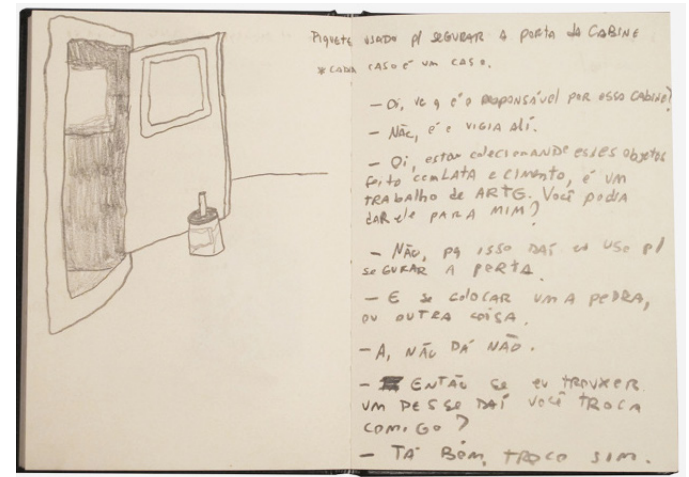 PIQUETE USADO P/ SEGURAR A PORTA DA CABINE
* CADA CASO É UM CASO.
— Oi, VC Q É O RESPONSÁVEL POR ESSA CABINE?
— NÃO, É O VIGIA ALÍ.
— Oi, estou colecionANDO ESSES objetos
feito com LATA E CIMENTO, É UM
TRABALHO de ARTE. Você podia
DAR ELE PARA MIM?
— NÃO, PQ ISSO DAÍ EU USO P/
SEGURAR A PORTA.
— E SE COLOCAR UMA PEDRA,
OU OUTRA COISA.
— A, NÃO DÁ NÃO.
— ENTÃO SE EU TROUXER
UM DESSE DAÍ VOCÊ TROCA
COMIGO?
— TÁ BOM, TROCO SIM.